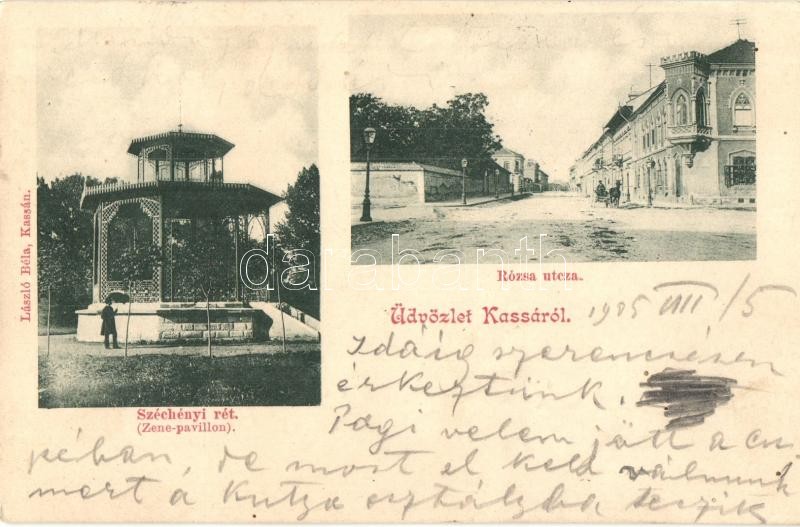 László Béla, Kassán.
Széchényi rét.
(Zene-pavillon).
Rózsa utcza.
Üdvözlet Kassáról. 1905 VIII/5
Idáig szerencsésen
érkeztünk.
Pogi velem jött a cu
péban, de most el kell válnunk
mert a kutya osztályba teszik
darabanth.com